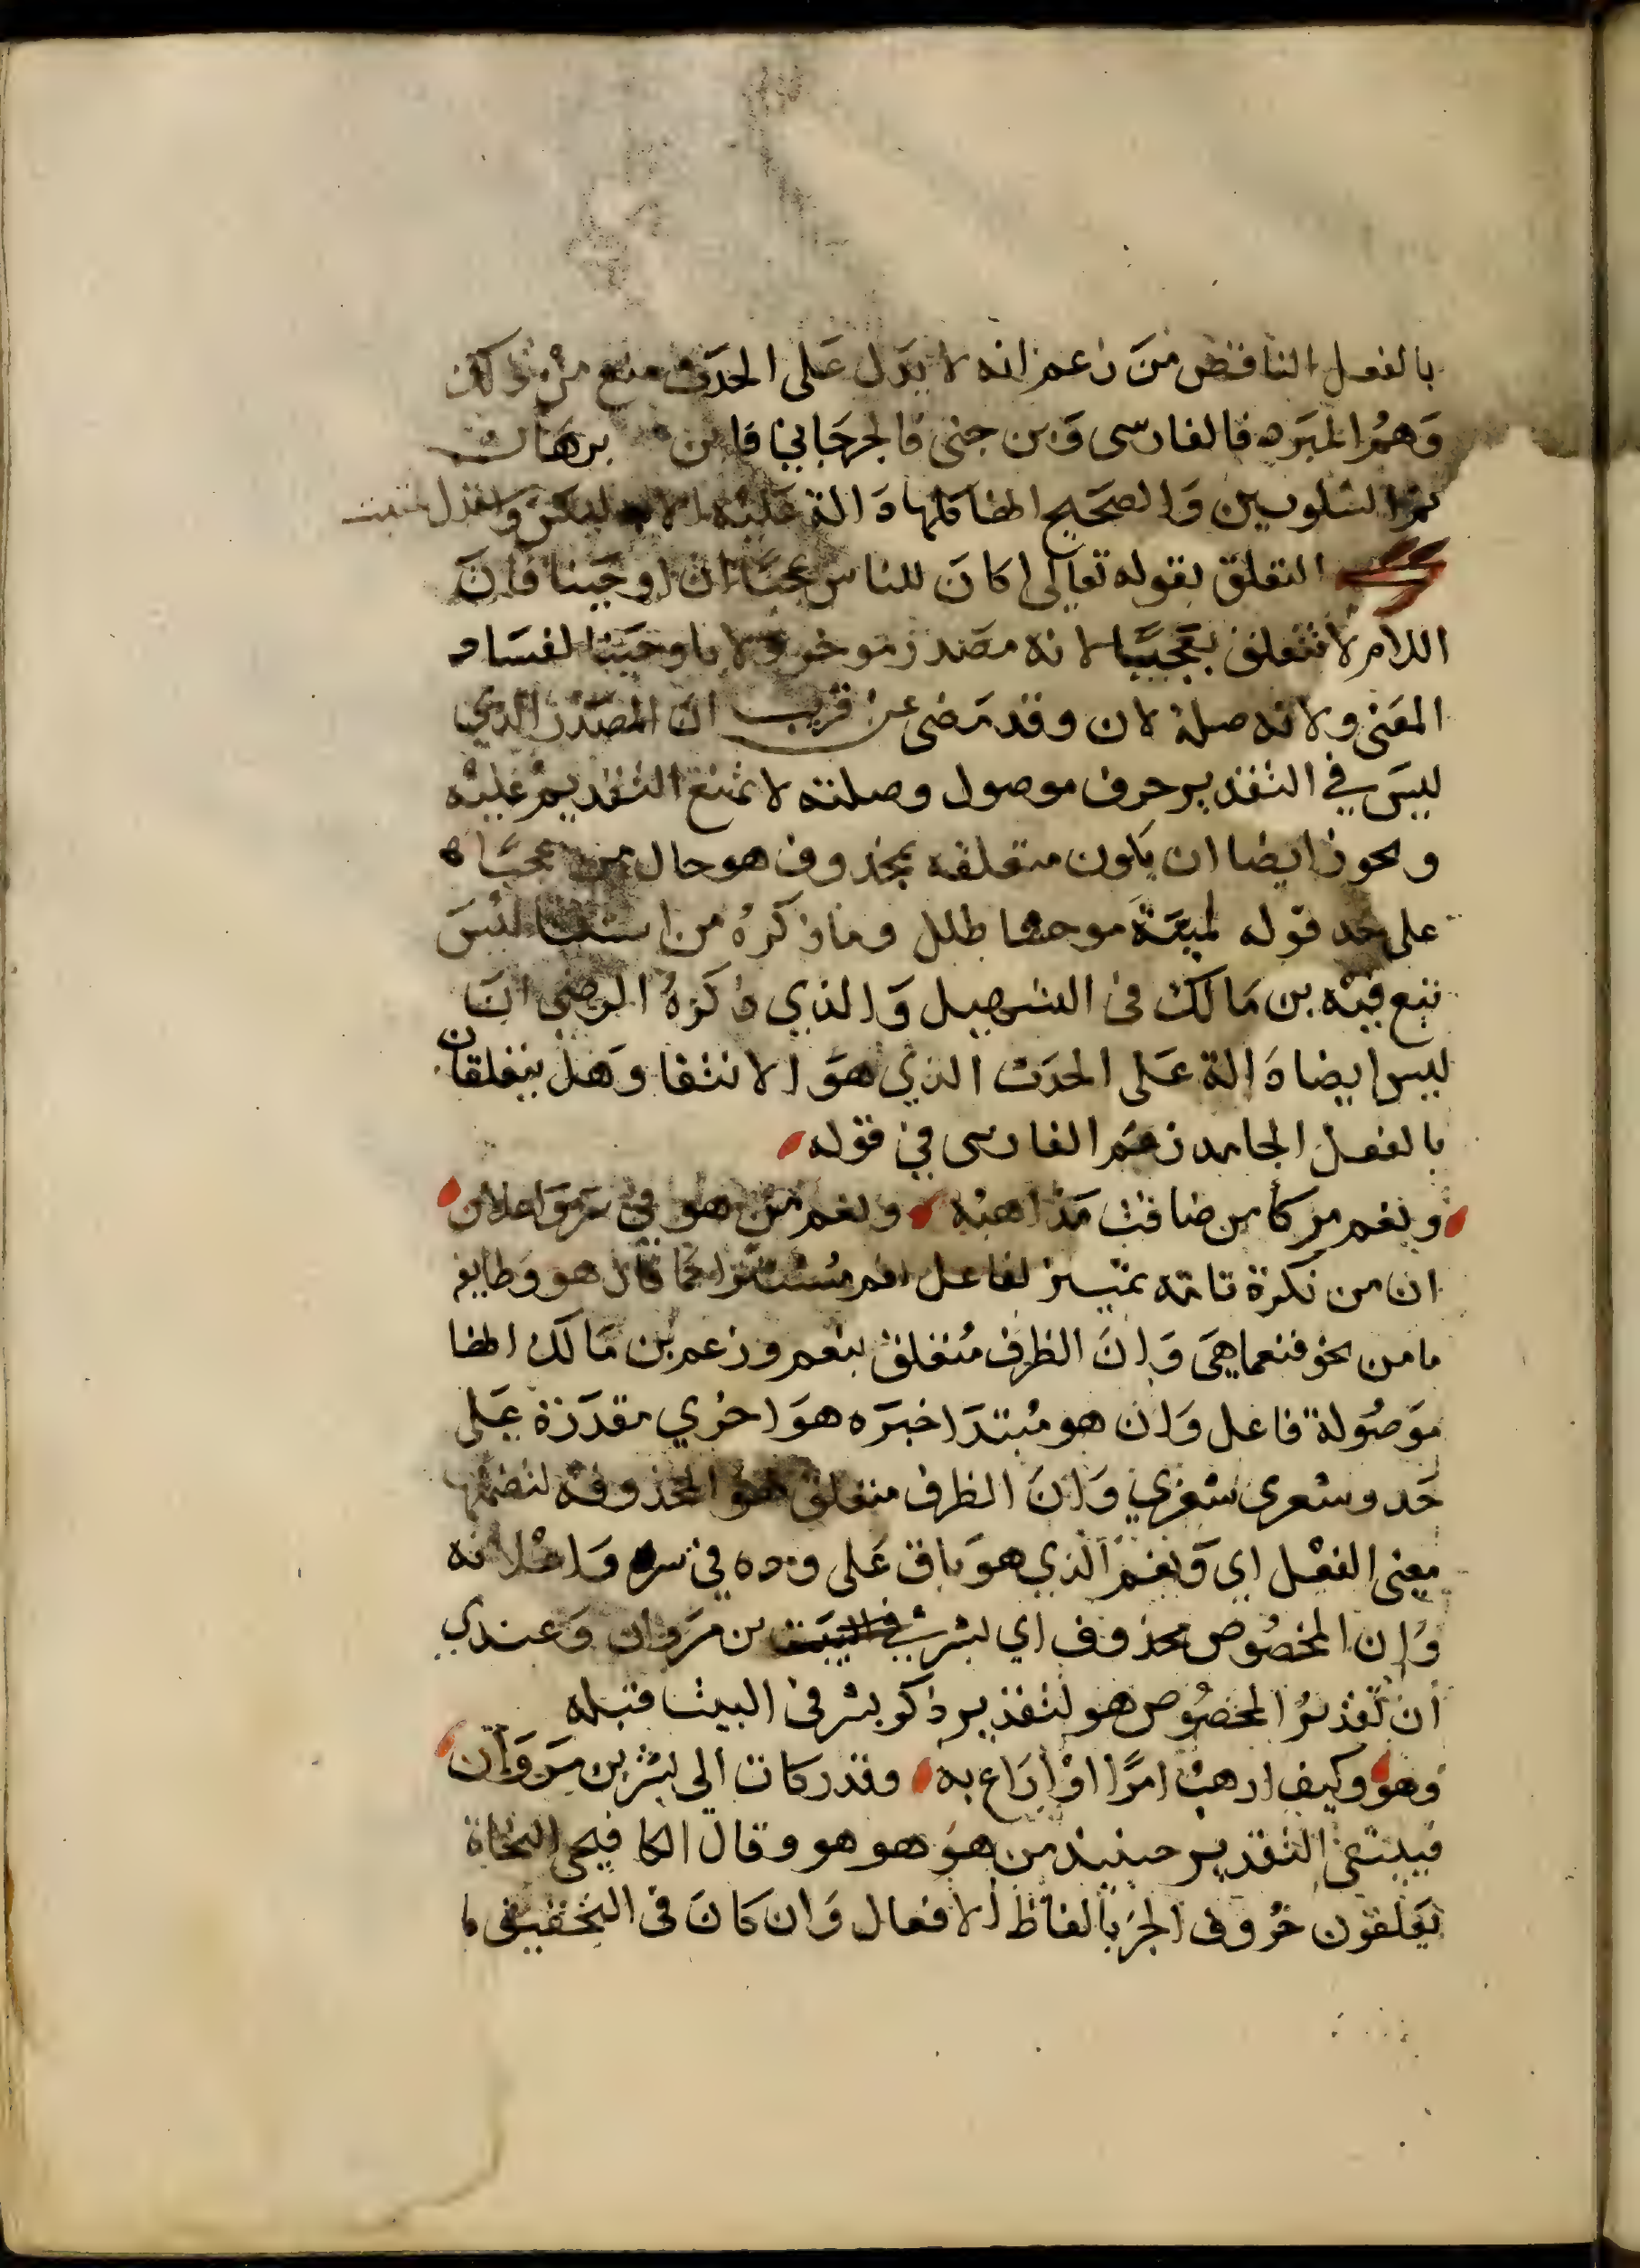 بالفعل الناقص من زعم انه لا يدل على الحدث منع من ذلك
وهم المبرد فالفارسى وبن جنى فالجرجاني فابن برهان
ثم الشلوبين والصحيح انها كلها دالة عليه الا ليس واستدل لمثبت
التعلق بقوله تعالى اكان للناس عجبا ان اوحينا فان
اللام لا تتعلق بعجبا لانه مصدر موخر ولا باوحينا لفساد
المعنى ولانه صلة لان وقد مضى عن قريب ان المصدر الذي
ليس في التقدير حرف موصول وصلته لا يمتنع التقديم عليه
ويجوز ايضا ان يكون متعلقه بمحذوف هو حال من عجبا
على حد قوله لمية موحشا طلل وما ذكره من استثنا ليس
تبع فيه بن مالك في التسهيل والذي ذكره الرضى ان
ليس ايضا دالة على الحدث الذي هو الانتفا وهل يتعلقان
بالفعل الجامد زعم الفارسى في قوله
ونعم مزكا من ضاقت مذاهبه ونعم من هو في سر واعلان
ان من نكرة تامه تمييز لفاعل نعم مستترا كما قال هو وطايفه
ما من نحو فنعما هى وان الظرف متعلق بنعم وزعم بن مالك انها
موصولة فاعل وان هو مبتدا خبره هو اخري مقدرة على
حد وشعرى شعري وان الظرف متعلق بهو المحذوفه لتضمنها
معنى الفعل اي ونعم الذي هو باق على وده في سره واعلانه
وان المخصوص محذوف اي بشر في البيت بن مروان وعندي
ان تقدير المخصوص هو لتقدير ذكر بشر في البيت قبله
وهو وكيف ارهب امرا او اراع به وقد ركات الى بشر بن مروان
فيبتقى التقدير حينيذ من هو هو هو وقال الكافيجى النحاة
يعلقون حروف الجر بالفاظ الافعال وان كان فى التحقيق